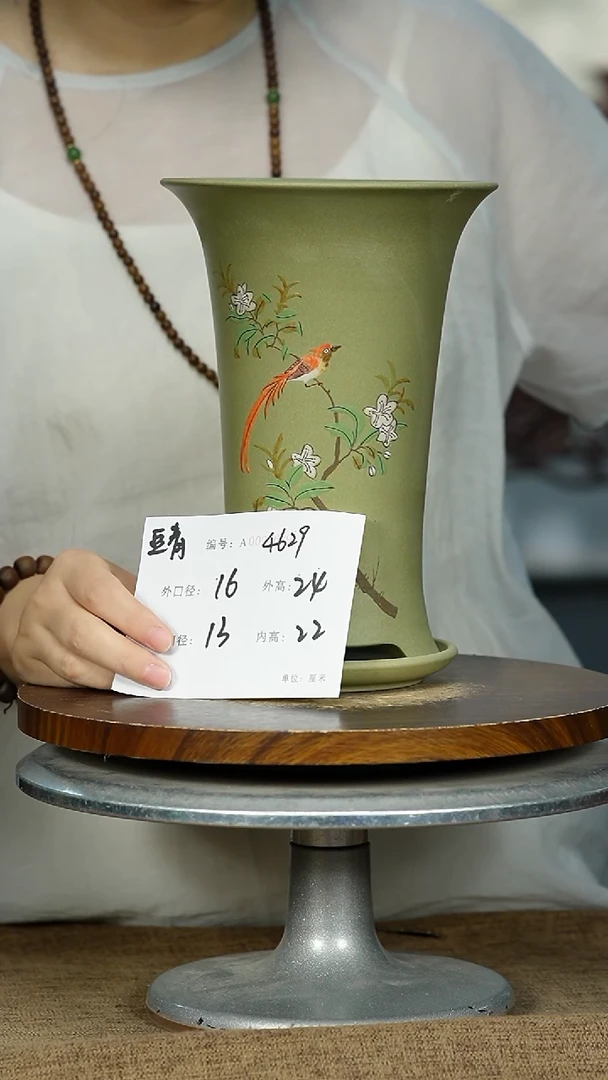 豆青 编号: A004629
外口径: 16 外高: 24
口径: 13 内高: 22
单位: 厘米